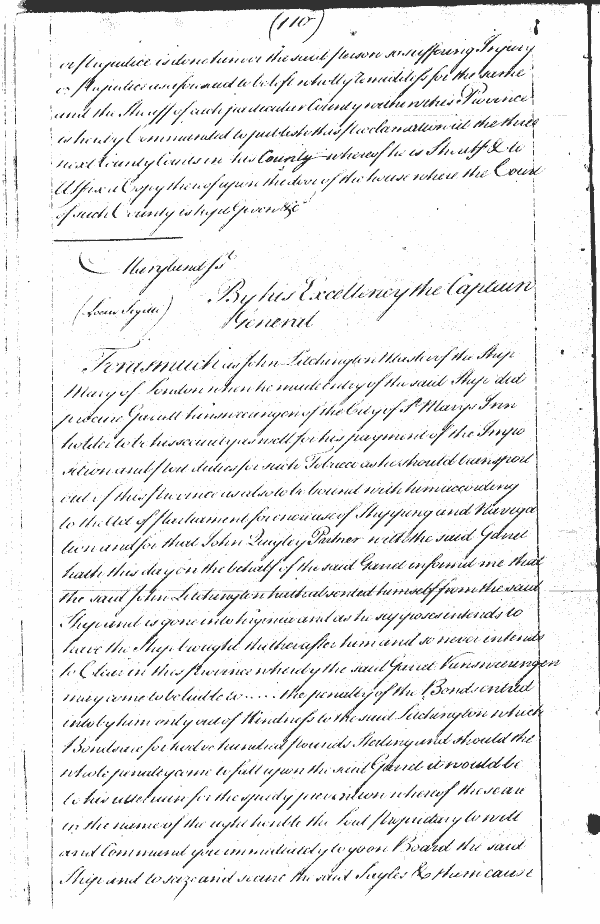 (110)
or Prejudice is done him or the said Person so suffering Injury
or Prejudice as aforesaid to be left wholly Remediless for the same
and the Sheriff of each particular County within this Province
is hereby Commanded to publish this Proclamation at the three
next County Courts in his County whereof he is Sheriff & to
Affix a Copy thereof upon the door of the house where the Court
of such County is kept Given &c
Maryland ss.
(Locus Sigilli)
By his Excellency the Captain
General
Forasmuch as John Litchington Master of the Ship
Mary of London when he made entry of the said Ship did
procure Garrett of the City of St Marys Inn
holder to be his security as well for his payment of the Impo
sition and Port duties for such Tobacco as he should transport
out of this Province as also to be bound with him according
to the Act of Parliament for increase of Shipping and Naviga
tion and for that John Quigley Partner with the said Garret
hath this day on the behalf of the said Garret informed me that
the said John Litchington hath absented himself from the said
Ship and is gone into Virginia and as he supposes intends to
have the Ship brought thither after him and so never intends
to Clear in this Province whereby the said Garret Vansweringen
may come to be liable to ..... the penalty of the Bonds entred
into by him only out of Kindness to the said Litchington which
Bonds are for twelve hundred pounds Sterling and should the
whole penalty come to fall upon the said Garret it would be
to his utter ruin for the speedy prevention whereof these are
in the name of the right honble the Lord Proprietary to will
and Command you immediately to go on Board the said
Ship and to seize and secure the said Sayles & them cause